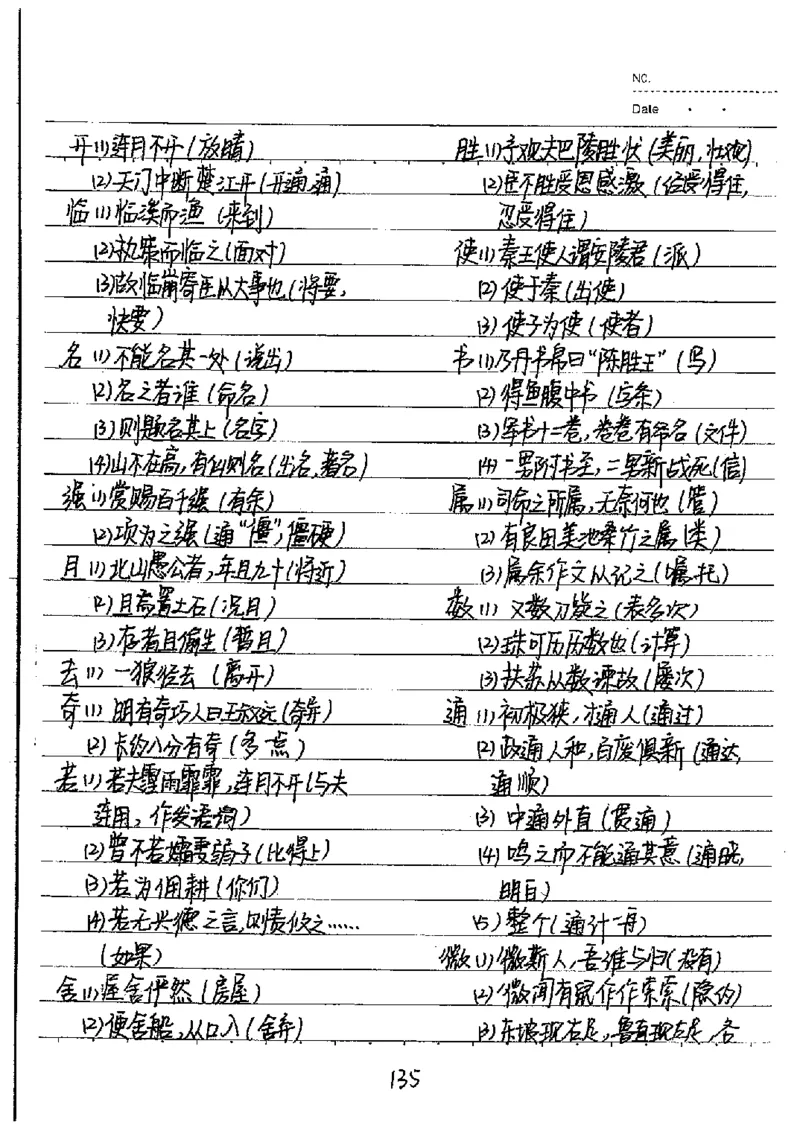 NC.
Date
开(1)连月不开(放晴)
(2)天门中断楚江开(开通,通)
临(1)临溪而渔(来到)
(2)执策而临之(面对)
(3)故临崩寄臣以大事也(将要,
快要)
名(1)不能名其一处(说出)
(2)名之者谁(命名)
(3)则题名其上(名字)
(4)山不在高,有仙则名(出名,著名)
强(1)赏赐百千强(有余)
(2)项为之强(通“僵”,僵硬)
且(1)北山愚公者,年且九十(将近)
(2)且焉置土石(况且)
(3)存者且偷生(暂且)
去(1)一狼径去(离开)
奇(1)明有奇巧人曰王叔远(奇异)
(2)长约八分有奇(多点)
若(1)若夫霪雨霏霏,连月不开(与夫
连用,作发语词)
(2)曾不若孀妻弱子(比得上)
(3)若为佣耕(你们)
(4)若无兴德之言,则责攸之……
(如果)
舍(1)屋舍俨然(房屋)
(2)便舍船,从口入(舍弃)
胜(1)予观夫巴陵胜状(美丽,壮观)
(2)臣不胜受恩感激(经受得住,
忍受得住)
使(1)秦王使人谓安陵君(派)
(2)使于秦(出使)
(3)使子为使(使者)
书(1)乃丹书帛曰“陈胜王”(写)
(2)得鱼腹中书(字条)
(3)军书十二卷,卷卷有爷名(文件)
(4)一男附书至,二男新战死(信)
属(1)司命之所属,无奈何也(管)
(2)有良田美池桑竹之属(类)
(3)属余作文以记之(嘱托)
数(1)又数刀毙之(表多次)
(2)珠可历历数也(计算)
(3)扶苏以数谏故(屡次)
通(1)初极狭,才通人(通过)
(2)政通人和,百废俱新(通达,
通顺)
(3)中通外直(贯通)
(4)鸣之而不能通其意(通晓,
明白)
(5)整个(通计一舟)
微(1)微斯人,吾谁与归(没有)
(2)微闻有鼠作作索索(隐约)
(3)东坡现右足,鲁直现左足,各
135